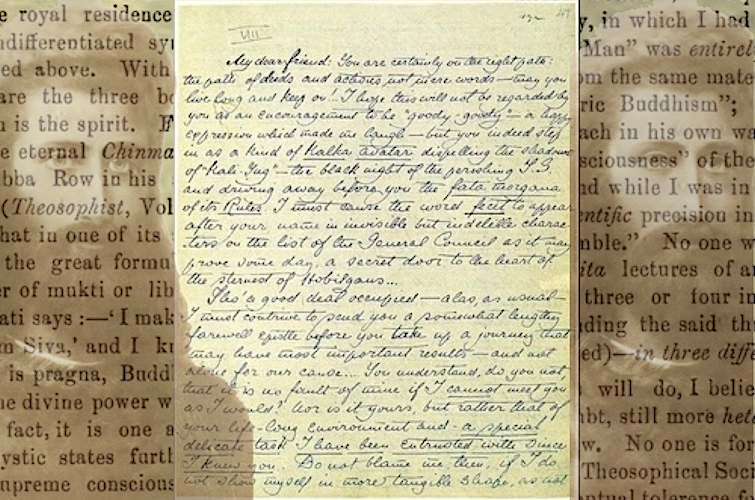 e royal residence
ndifferentiated sy
ed above. With
are the three bo
n is the spirit. If
e eternal Chinma
bba Row in his
(Theosophist, Vol
hat in one of its
the great formu
er of mukti or lib
ati says :—'I mak
m Siva,' and I kn
is pragna, Buddh
ne divine power w
fact, it is one a
ystic states furth
upreme conscious
VIII
My dear friend: You are certainly on the right path:
the path of deeds and actions, not mere words — may you
live long and keep on!... I hope this will not be regarded by
you as an encouragement to be "goody goody" — a happy
expression which made me laugh — but you indeed step
in as a kind of Kalka avatar dispelling the shadows
of "Kali-Yug" — the black night of the perishing T.S.
and driving away before you the fata morgana
of its Rules. I must cause the word fecit to appear
after your name in invisible but indelible charac-
ters on the list of the General Council as it may
prove some day, a secret door to the heart of
the sternest of Hobilgans...
Tho' a good deal occupied — alas, as usual —
I must contrive to send you a somewhat lengthy
farewell epistle before you take up a journey that
may have most important results — and not
alone for our cause... You understand, do you not
that it is no fault of mine if I cannot meet you
as I would? Nor is it yours, but rather that of
your life-long environment and a special
delicate task I have been entrusted with since
I knew you. Do not blame me then, if I do
not show myself in more tangible shape, as not
y, in which I had
"Man" was entirel
om the same mate
ric Buddhism";
ach in his own wa
sciousness" of the
nd while I was in
entific precision in
mble." No one w
ita lectures of a
three or four in
ding the said th
ed)—in three diffe
will do, I belie
bt, still more hel
w. No one is for
Theosophical Soc